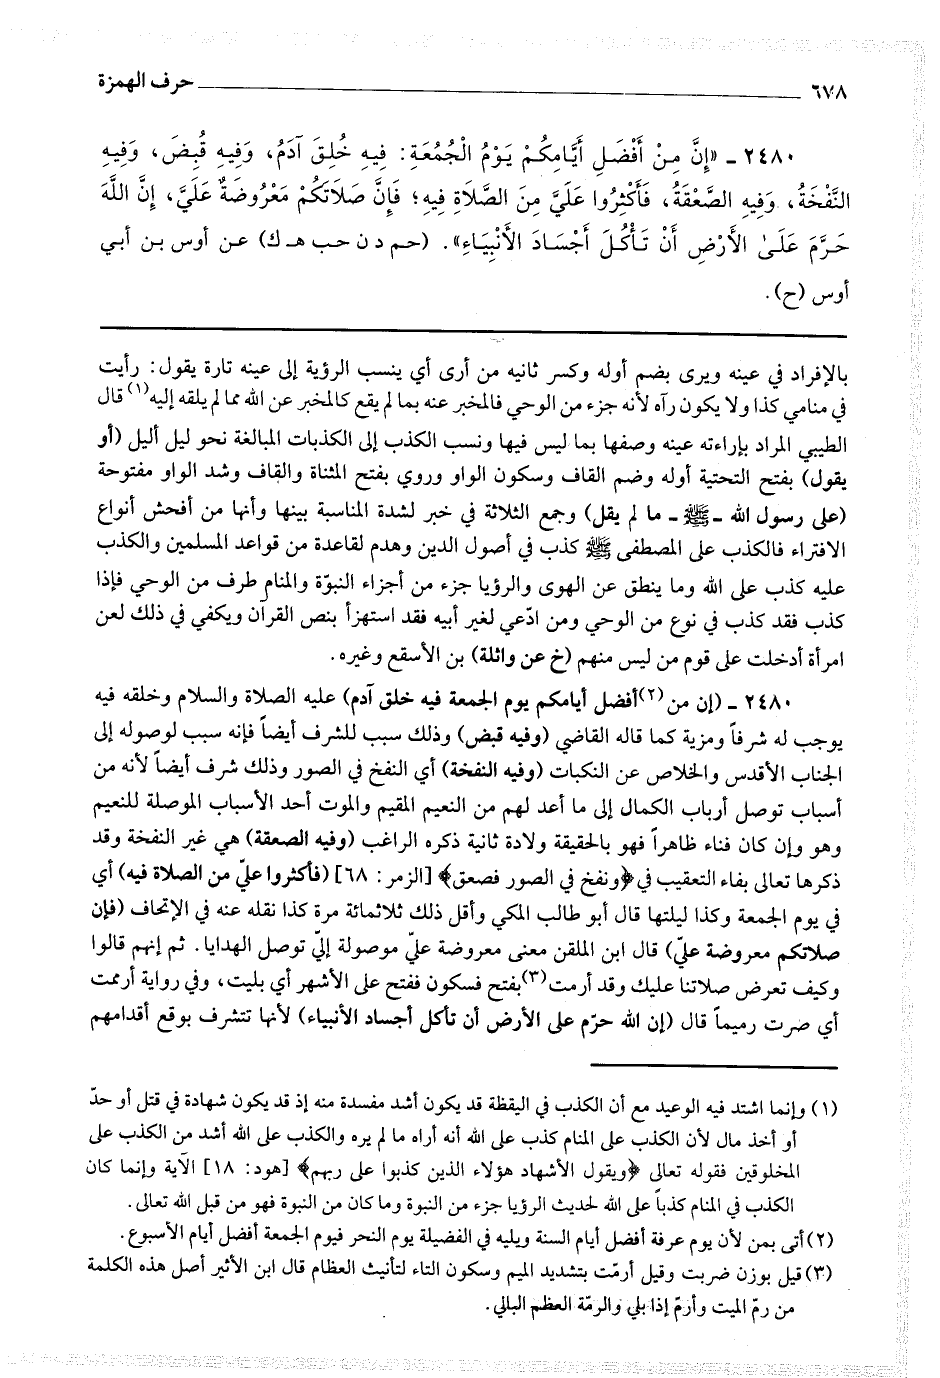 ٦٧٨ ــــــــــــــــــــ حرف الهمزة
٢٤٨٠ ـ «إِنَّ مِنْ أَفْضَلِ أَيَّامِكُمْ يَوْمُ الْجُمُعَةِ: فِيهِ خُلِقَ آدَمُ، وَفِيهِ قُبِضَ، وَفِيهِ
النَّفْخَةُ، وَفِيهِ الصَّعْقَةُ، فَأَكْثِرُوا عَلَيَّ مِنَ الصَّلَاةِ فِيهِ؛ فَإِنَّ صَلَاتَكُمْ مَعْرُوضَةٌ عَلَيَّ، إِنَّ اللَّهَ
حَرَّمَ عَلَىٰ الأَرْضِ أَنْ تَأْكُلَ أَجْسَادَ الأَنْبِيَاءِ». (حـم د ن حب هـ ك) عن أوس بن أبي
أوس (ح).
بالإفراد في عينه ويرى بضم أوله وكسر ثانيه من أرى أي ينسب الرؤية إلى عينه تارة يقول: رأيت
في منامي كذا ولا يكون رآه لأنه جزء من الوحي فالمخبر عنه بما لم يقع كالمخبر عن الله مما لم يلقه إليه(١) قال
الطيبي المراد بإراءته عينه وصفها بما ليس فيها ونسب الكذب إلى الكذبات المبالغة نحو ليل أليل (أو
يقول) بفتح التحتية أوله وضم القاف وسكون الواو وروي بفتح المثناة والقاف وشد الواو مفتوحة
(على رسول الله ـ ﷺ ـ ما لم يقل) وجمع الثلاثة في خبر لشدة المناسبة بينها وأنها من أفحش أنواع
الافتراء فالكذب على المصطفى ﷺ كذب في أصول الدين وهدم لقاعدة من قواعد المسلمين والكذب
عليه كذب على الله وما ينطق عن الهوى والرؤيا جزء من أجزاء النبوّة والمنام طرف من الوحي فإذا
كذب فقد كذب في نوع من الوحي ومن ادّعي لغير أبيه فقد استهزأ بنص القرآن ويكفي في ذلك لعن
امرأة أدخلت على قوم من ليس منهم (خ عن واثلة) بن الأسقع وغيره.
٢٤٨٠ ـ (إن من (٢)أفضل أيامكم يوم الجمعة فيه خلق آدم) عليه الصلاة والسلام وخلقه فيه
يوجب له شرفاً ومزية كما قاله القاضي (وفيه قبض) وذلك سبب للشرف أيضاً فإنه سبب لوصوله إلى
الجناب الأقدس والخلاص عن النكبات (وفيه النفخة) أي النفخ في الصور وذلك شرف أيضاً لأنه من
أسباب توصل أرباب الكمال إلى ما أعد لهم من النعيم المقيم والموت أحد الأسباب الموصلة للنعيم
وهو وإن كان فناء ظاهراً فهو بالحقيقة ولادة ثانية ذكره الراغب (وفيه الصعقة) هي غير النفخة وقد
ذكرها تعالى بفاء التعقيب في ﴿ونفخ في الصور فصعق﴾ [الزمر: ٦٨] (فأكثروا عليّ من الصلاة فيه) أي
في يوم الجمعة وكذا ليلتها قال أبو طالب المكي وأقل ذلك ثلاثمائة مرة كذا نقله عنه في الإتحاف (فإن
صلاتكم معروضة عليّ) قال ابن الملقن معنى معروضة عليّ موصولة إليّ توصل الهدايا. ثم إنهم قالوا
وكيف تعرض صلاتنا عليك وقد أرمت(٣)بفتح فسكون ففتح على الأشهر أي بليت، وفي رواية أرممت
أي صرت رميماً قال (إن الله حرّم على الأرض أن تأكل أجساد الأنبياء) لأنها تتشرف بوقع أقدامهم
(١) وإنما اشتد فيه الوعيد مع أن الكذب في اليقظة قد يكون أشد مفسدة منه إذ قد يكون شهادة في قتل أو حدّ
أو أخذ مال لأن الكذب على المنام كذب على الله أنه أراه ما لم يره والكذب على الله أشد من الكذب على
المخلوقين فقوله تعالى ﴿ويقول الأشهاد هؤلاء الذين كذبوا على ربهم﴾ [هود: ١٨] الآية وإنما كان
الكذب في المنام كذباً على الله لحديث الرؤيا جزء من النبوة وما كان من النبوة فهو من قبل الله تعالى.
(٢) أتى بمن لأن يوم عرفة أفضل أيام السنة ويليه في الفضيلة يوم النحر فيوم الجمعة أفضل أيام الأسبوع.
(٣) قيل بوزن ضربت وقيل أرمّت بتشديد الميم وسكون التاء لتأنيث العظام قال ابن الأثير أصل هذه الكلمة
من رمّ الميت وأرمّ إذا بلي والرمّة العظم البالي.